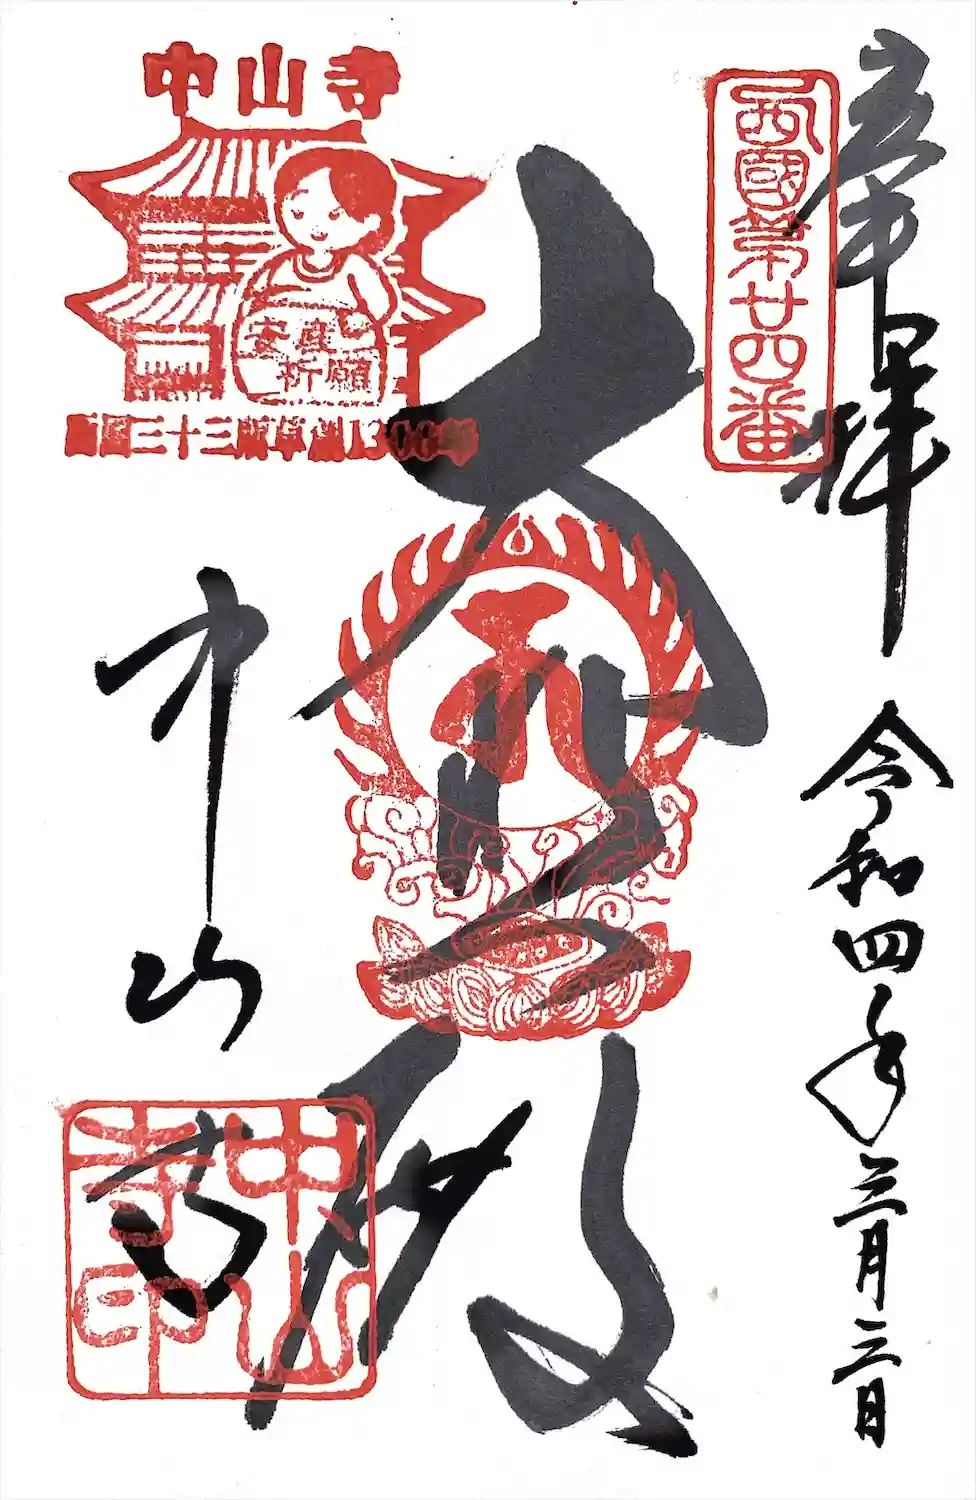 奉拝
西國第廿四番
令和四年三月三日
大悲殿
中山寺
安産
祈願
西国三十三所草創1300年
中山寺
中山寺印